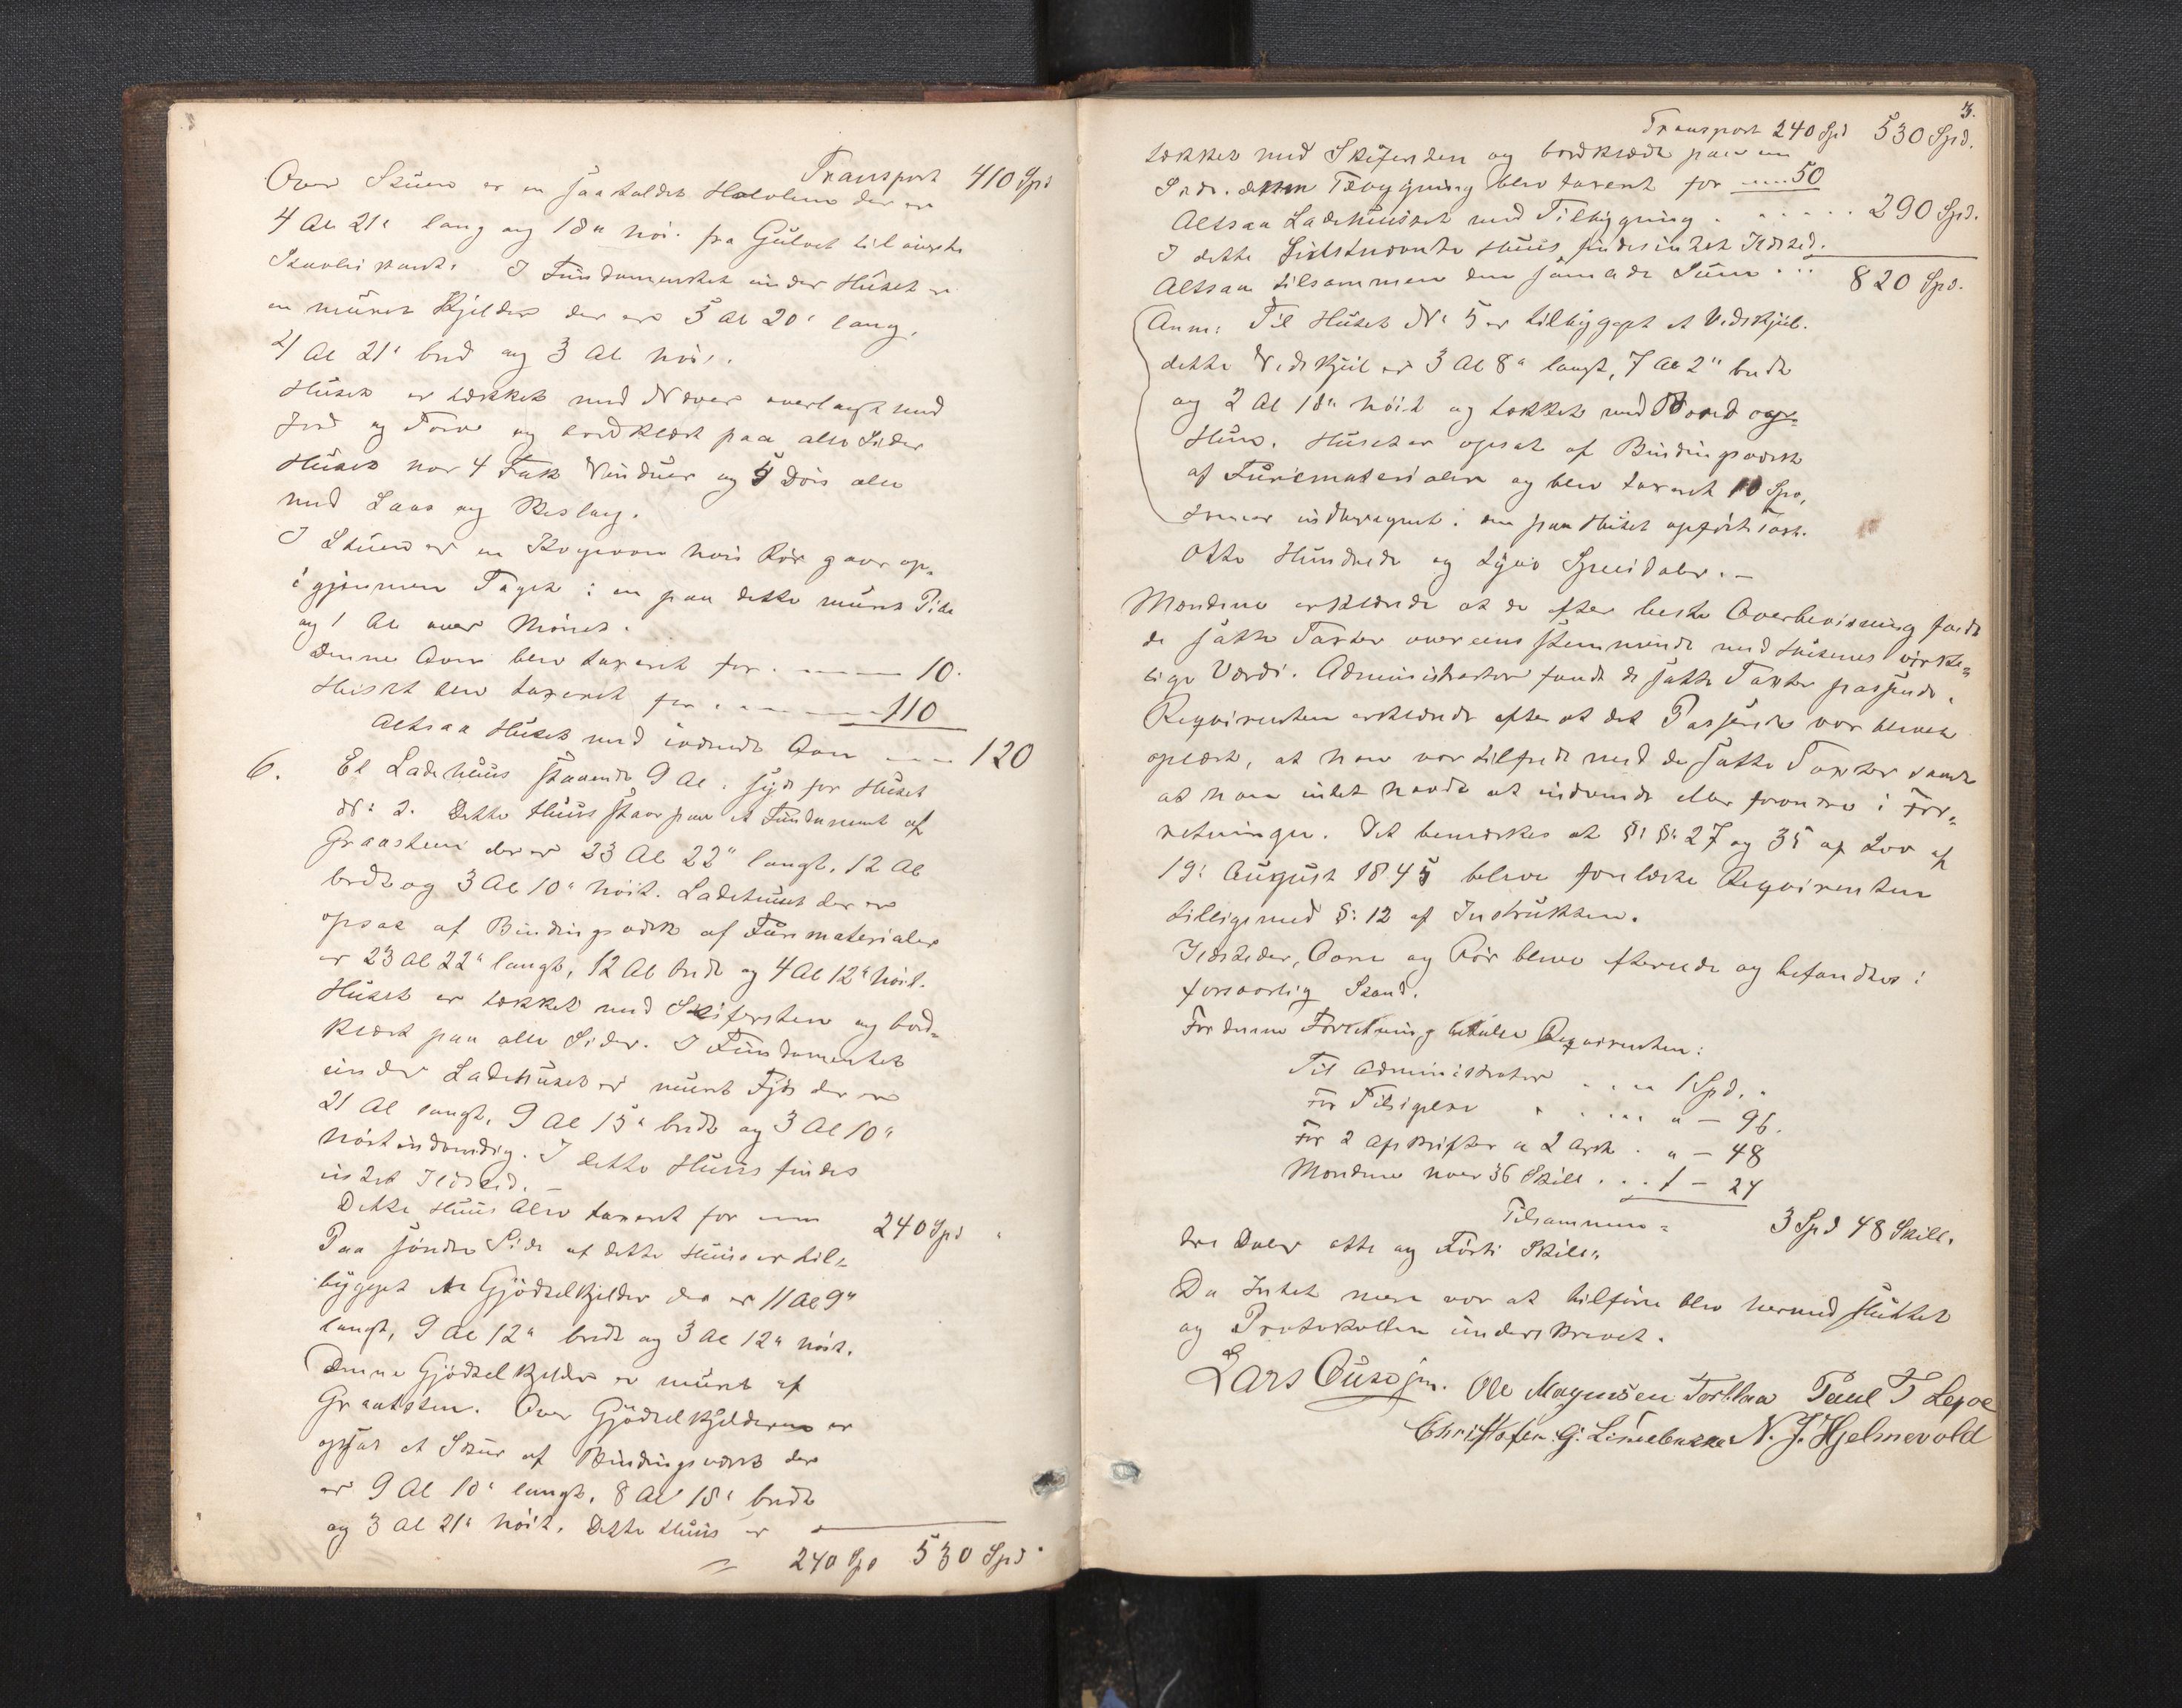 Transport 410 Spd
Over Stuen er en saakaldet Halvlem der er
4 Al 21" lang og 18" høi fra Gulvet til øverste
Stavlei kant. I Fundamentet under Huset er
en muret Kjelder der er 5 Al 20" lang,
4 Al 21" bred og 3 Al høi.
Huset er tækket med Næver overlagt med
Jord og Torv og bordklædt paa alle Sider
Huset har 4 Fak Vinduer og 5 Døre alle
med Laas og Beslag.
I Stuen er en Kogeovn hvis Rør gaar op
igjennem Taget i en paa dette muret Pibe
og 1 Al over Mønet.
Denne Ovn blev taxeret for . 10.
Huset blev taxeret for . 110
Altsaa Huset med iværende Ovn 120
6. Et Ladehuus staaende 9 Al. syd for Huset
N: 2. Dette Huus staar paa et Fundament af
Graasteen der er 23 Al 22" langt, 12 Al
bredt og 3 Al 10" høit. Ladehuset der er
opsat af Bindingsværk af Furematerialer
er 23 Al 22" langt, 12 Al bredt og 4 Al 12" høit.
Huset er tækket med Skifersten og bord-
klædt paa alle Sider. I Fundamentet
under Ladehuset er muret Fjøs der er
21 Al langt, 9 Al 15" bredt og 3 Al 10"
høit indvendig. I dette Huus findes
intet Ildsted.
Dette Huus blev taxeret for 240 Spd "
Paa søndre Side af dette Huus er til-
bygget en Gjødselkjelder der er 11 Al 9"
langt, 9 Al 12" bredt og 3 Al 12" høit.
Denne Gjødselkjelder er muret af
Graasten. Over Gjødselkjelderen er
opsat et Skur af Bindingsværk der
er 9 Al 10" langt, 8 Al 18" bredt
og 3 Al 21" høit. Dette Huus er
240 Spd 530 Spd.
3.
Transport 240 Spd 530 Spd.
tækket med Skifersten og bordklædt paa en
Side. denne Tilbygning blev taxert for 50
Altsaa Ladehuuset med Tilbygning . . . . . . 290 Spd.
I dette Sidstnævnte Huus findes intet Ildsted.
Altsaa tilsammen den samlede Sum . . . 820 Spd.
Anm: Til Huset N: 5 er tilbygget et Vedskjul.
dette Vedskjul er 3 Al 8" langt, 7 Al 2" bredt
og 2 Al 18" høit og tækket med Bord og
Huun. Huset er opsat af Bindingsværk
af Furematerialer og blev taxeret 10 Spd,
som er indberegnet i den paa Huset opførte Taxt.
Otte Hundrede og tyve Speciedaler. -
Mændene erklærede at de efter beste Overbeviisning fandt
de satte Taxter overeensstemmende med Husenes virke-
lige Værdi. Administrator fandt de satte Taxter passende.
Reqvirenten erklærede efter at det Passerede var bleven
oplæst, at han var tilfreds med de satte Taxter samt
at han intet havde at indvende eller forandre i For-
retningen. Det bemærkes at §: §: 27 og 35 af Lov af
19: August 1845 bleve forelæste Reqvirenten
tilligemed §: 12 af Instruksen.
Ildsteder, Ovne og Rør bleve efterseede og befandtes i
forsvarlig Stand.
For denne Forretning betaler Reqvirenten:
Til Administrator . . . 1 Spd. "
For Tilsigelse . . . " - 96.
For 2 Afskrifter a 2 Ark . " - 48
Mændene hver 36 Skill . . . 1 - 24
Tilsammen = 3 Spd 48 Skill.
tre Daler otte og Førti Skill.
Da Intet mere var at tilføre blev hermed sluttet
og Protokollen underskrevet.
Lars jun. Ole Magnusen Paul T
Christofer G. N. J. Hjelmevold